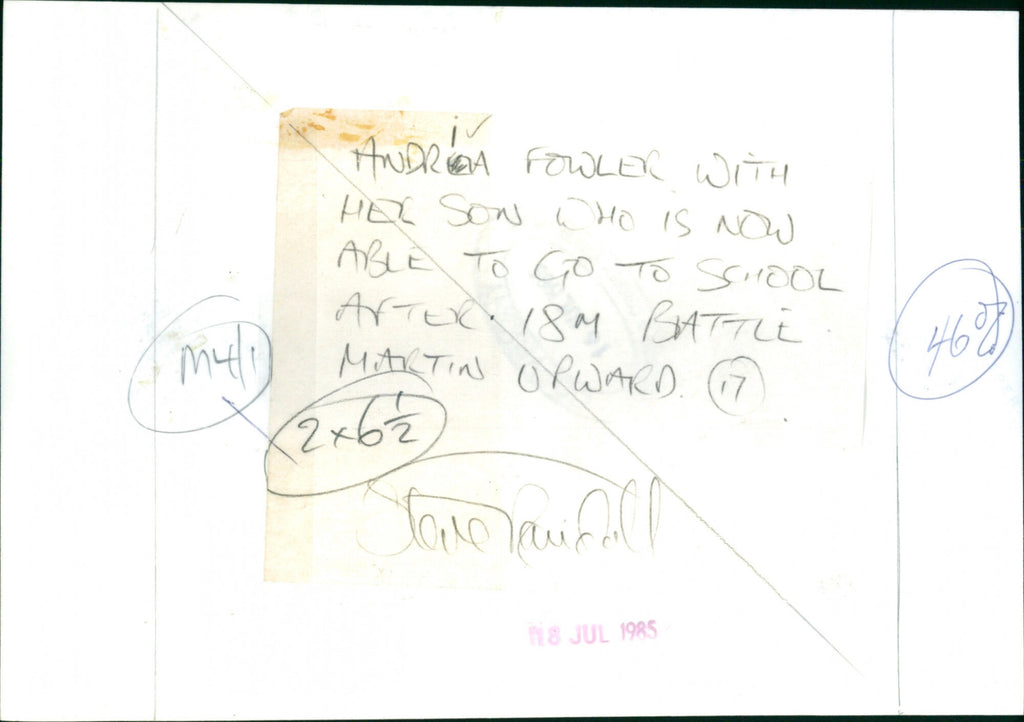 ANDRIA FOWLER WITH
HER SON WHO IS NOW
ABLE TO GO TO SCHOOL
AFTER. 18M BATTLE
MARTIN UPWARD. 17
M4/1
2x6 1/2
Steve
18 JUL 1985